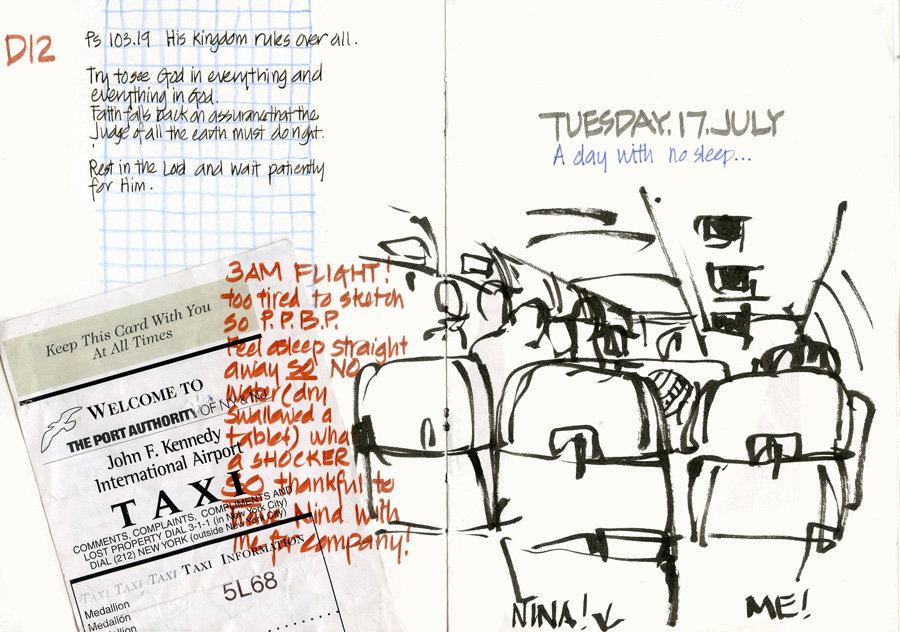 D12
Ps 103.19 His kingdom rules over all.
Try to see God in everything and
everything in God.
Faith falls back on assurance that the
Judge of all the earth must do right.
Rest in the Lord and wait patiently
for Him.
TUESDAY.17.JULY
A day with no sleep...
3AM FLIGHT!
too tired to sketch
so P.P.B.P.
Feel asleep straight
away SO NO
Water (dry
swallowed a
tablet) what
a SHOCKER
SO thankful to
have Nina with
me for company!
Keep This Card With You
At All Times
WELCOME TO
THE PORT AUTHORITY OF NY & NJ
John F. Kennedy
International Airport
TAXI
COMMENTS, COMPLAINTS, COMPLIMENTS AND
LOST PROPERTY DIAL 3-1-1 (in New York City)
DIAL (212) NEW YORK (outside New York City)
TAXI TAXI TAXI TAXI INFORMATION
5L68
Medallion
Medallón
NINA!
ME!